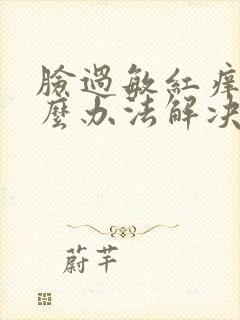 臉過敏紅痒
麼办法解决
蔚芊